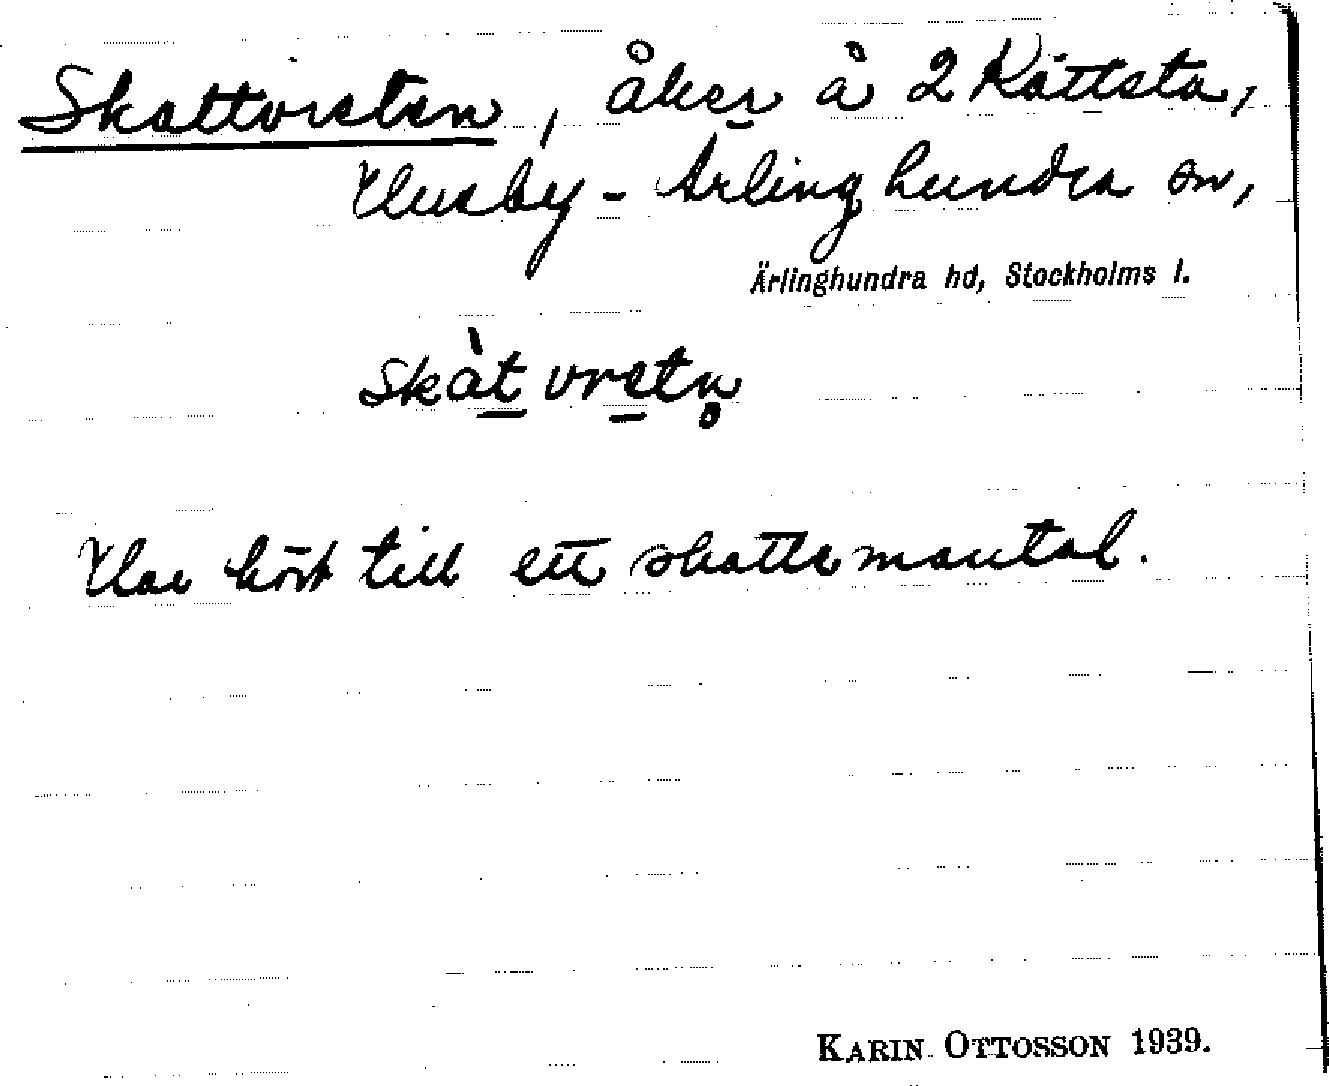 Skattvreten, åker å 2 Kättsta,
Husby-Ärlinghundra sn,
Ärlinghundra hd, Stockholms l.
skàt vretn̥
Har hört till ett skattemantal.
KARIN OTTOSSON 1939.